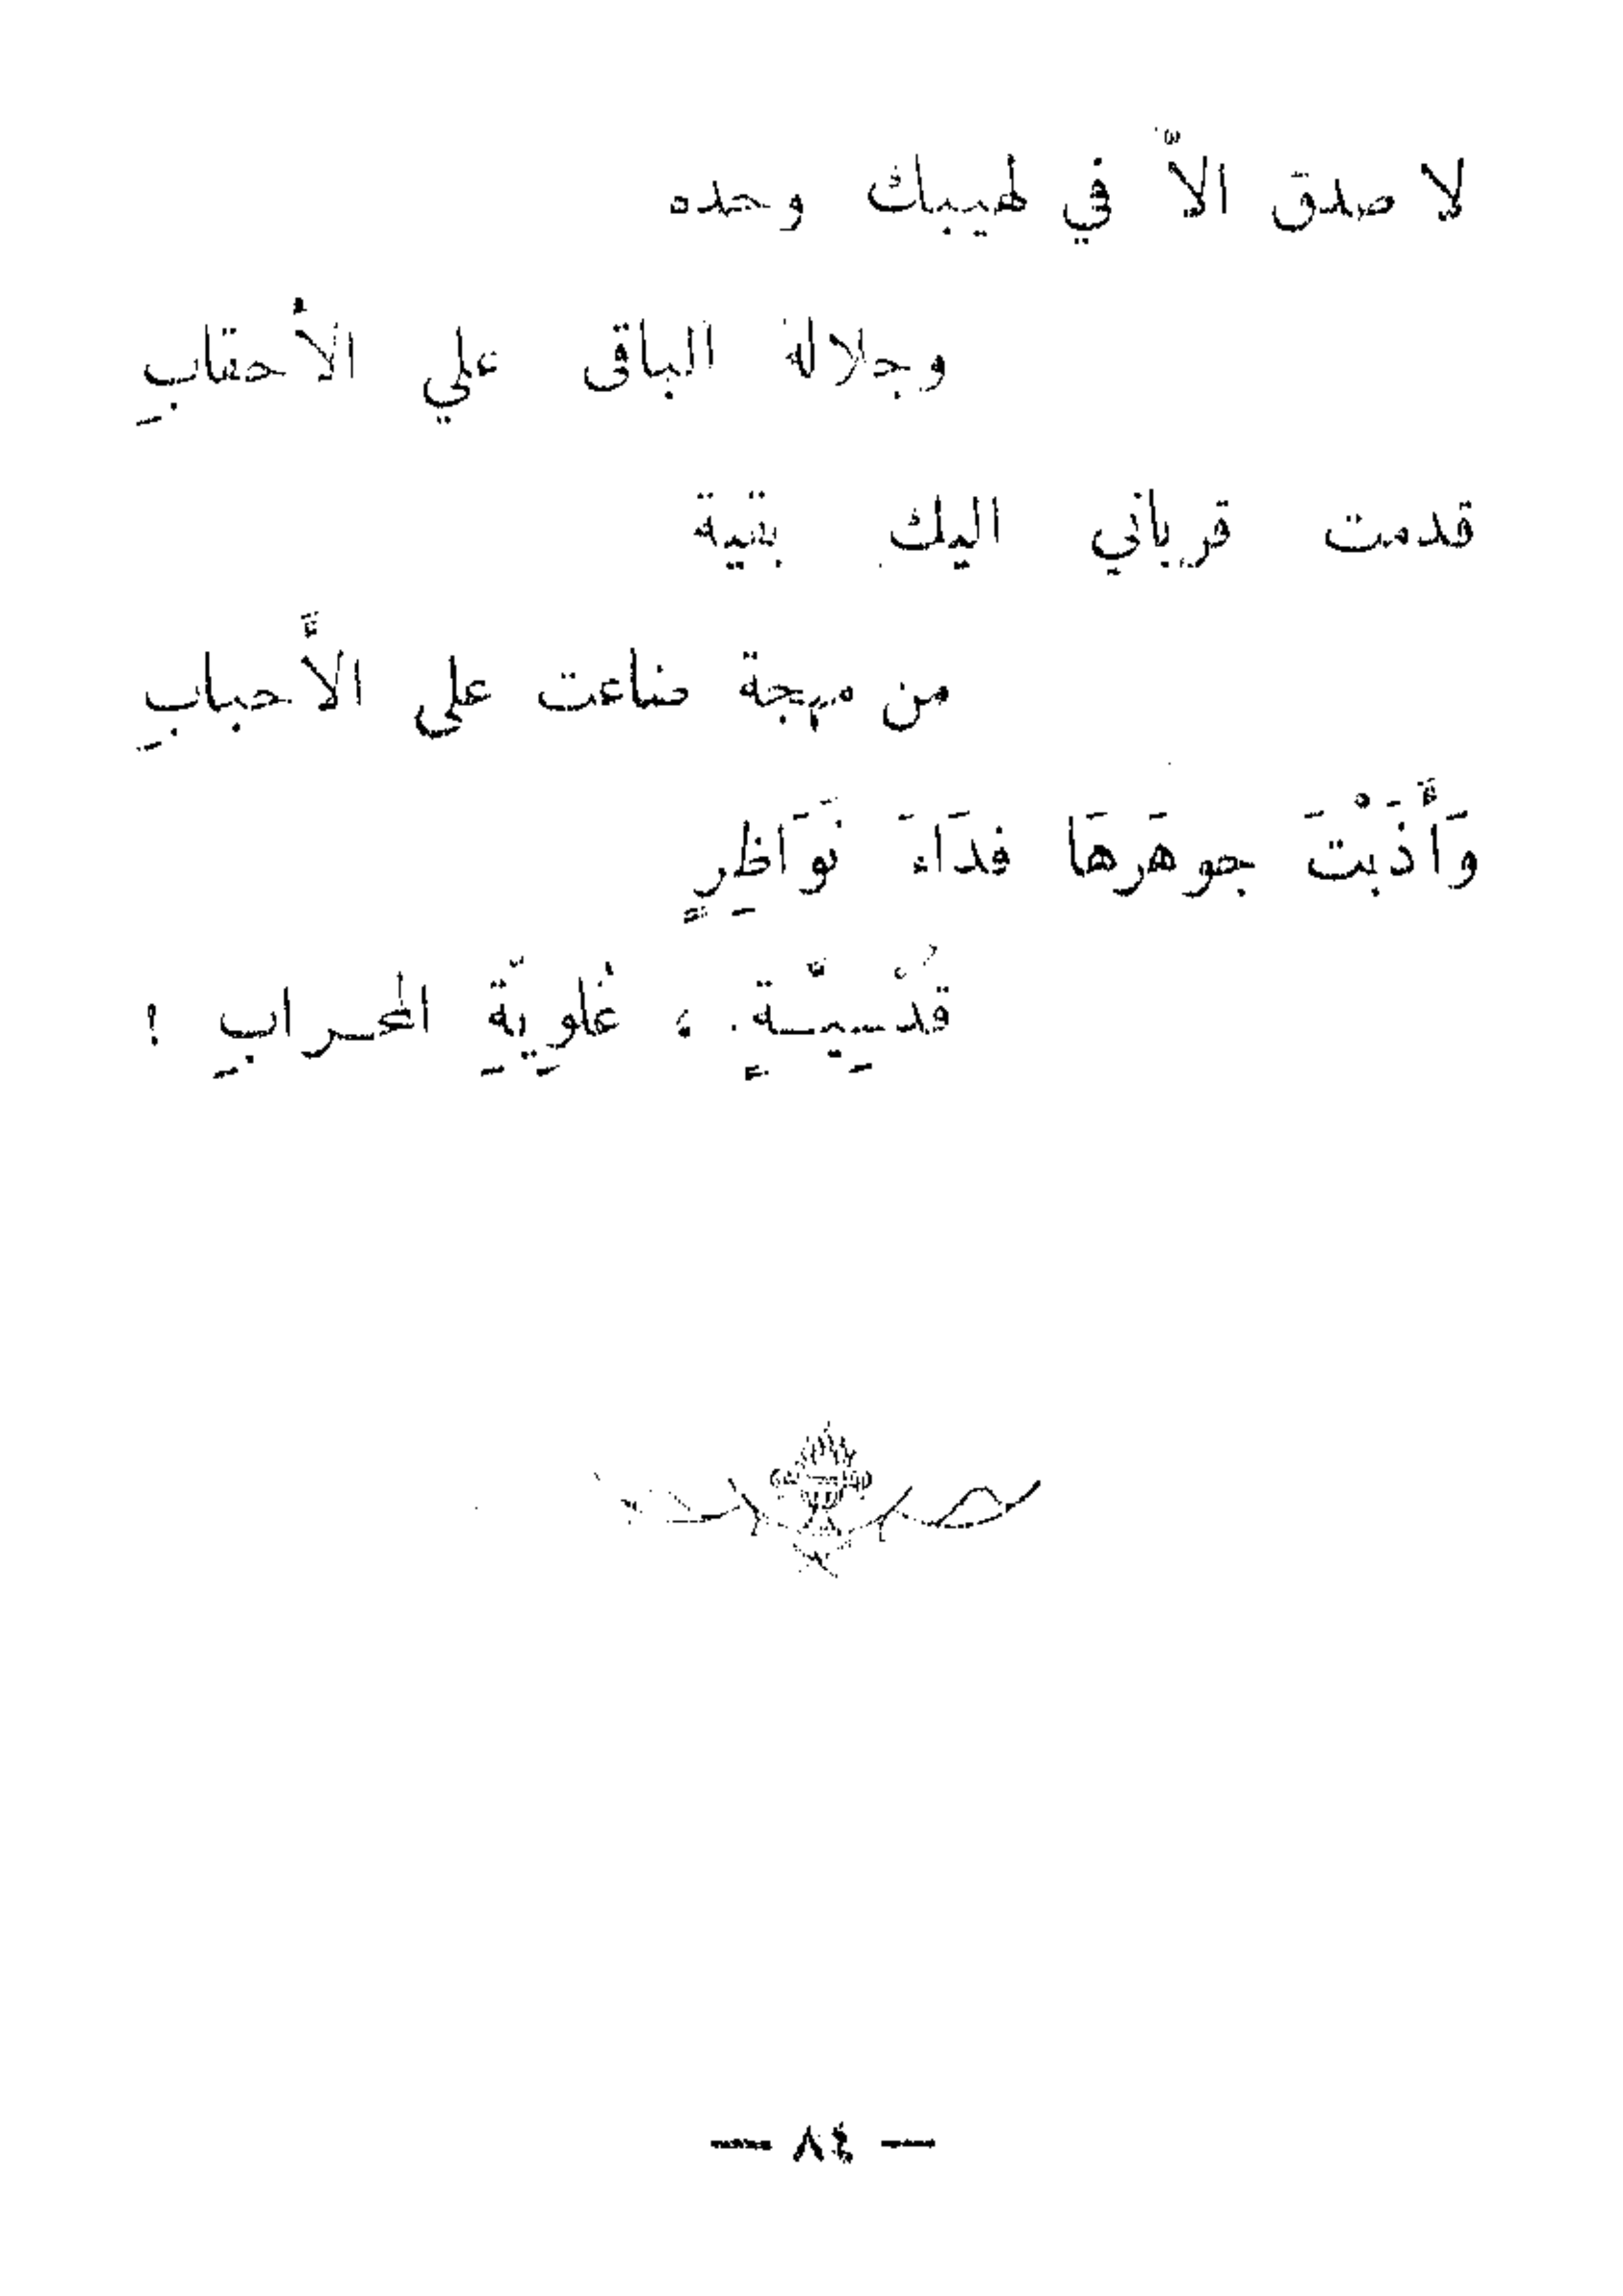 لا صدق الاّ في لهيبك وحده
وجلالة الباقى علي الأحقابِ
قدمت قرباني اليكِ بقية
من مهجة ضاعت على الأَحبابِ
وَأَذَبْتَ جوهَرهَا فدَاءَ نَوَاظِرٍ
قُدْسِيّـةٍ ، عُلوِيّةِ المحـرابِ !
— ٨٤ —